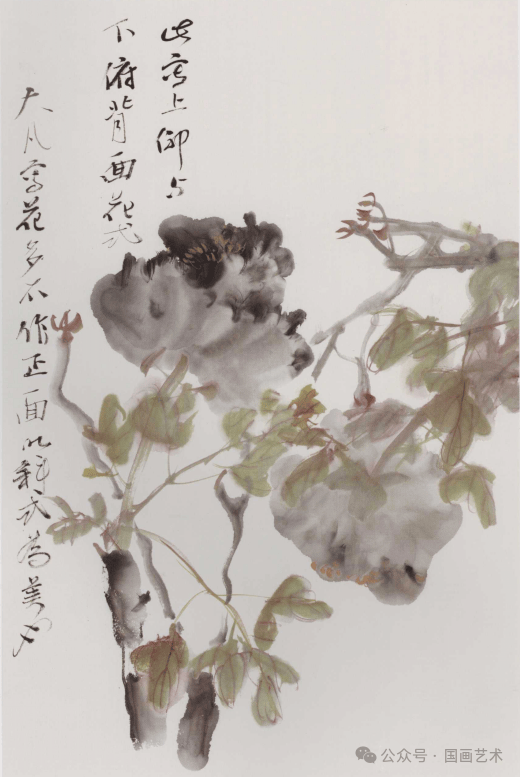 此写上仰与
下府背面花式
大凡写花多不作正面以斜式为美也
公众号·国画艺术